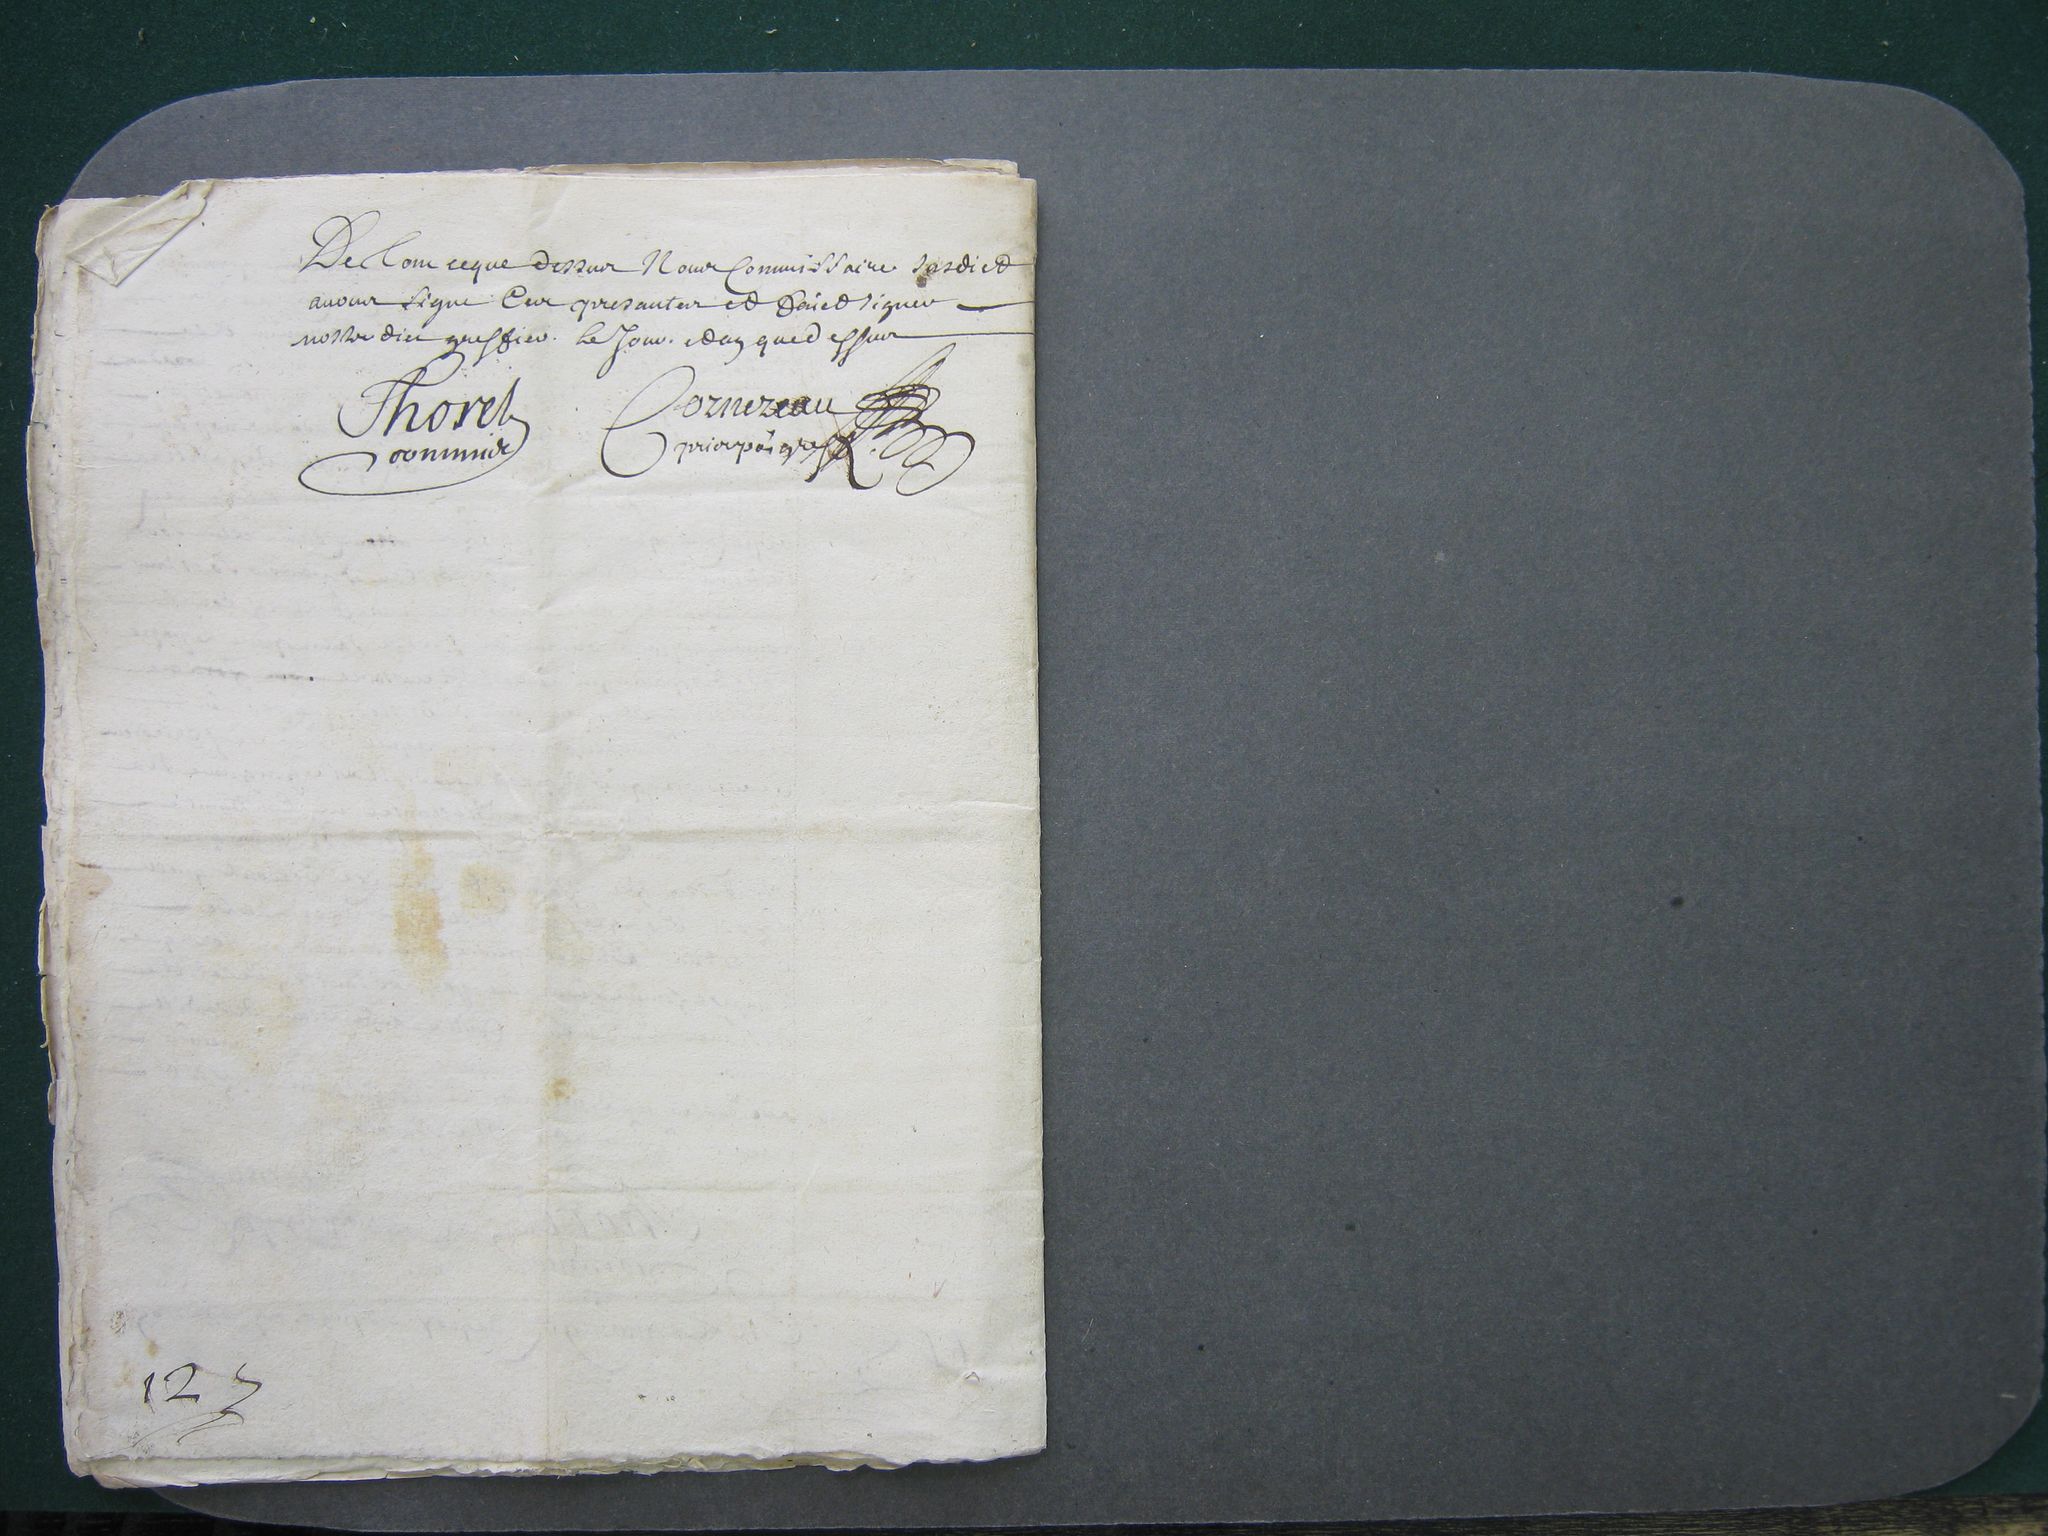 De tout ceque dessus Nous Commissaire susdict
avons signé Ces presantes et faict signer
nostre dict greffier. le Jour. et an que dessus
Thoret
commis
Cornezeau
pris pour greff.
123